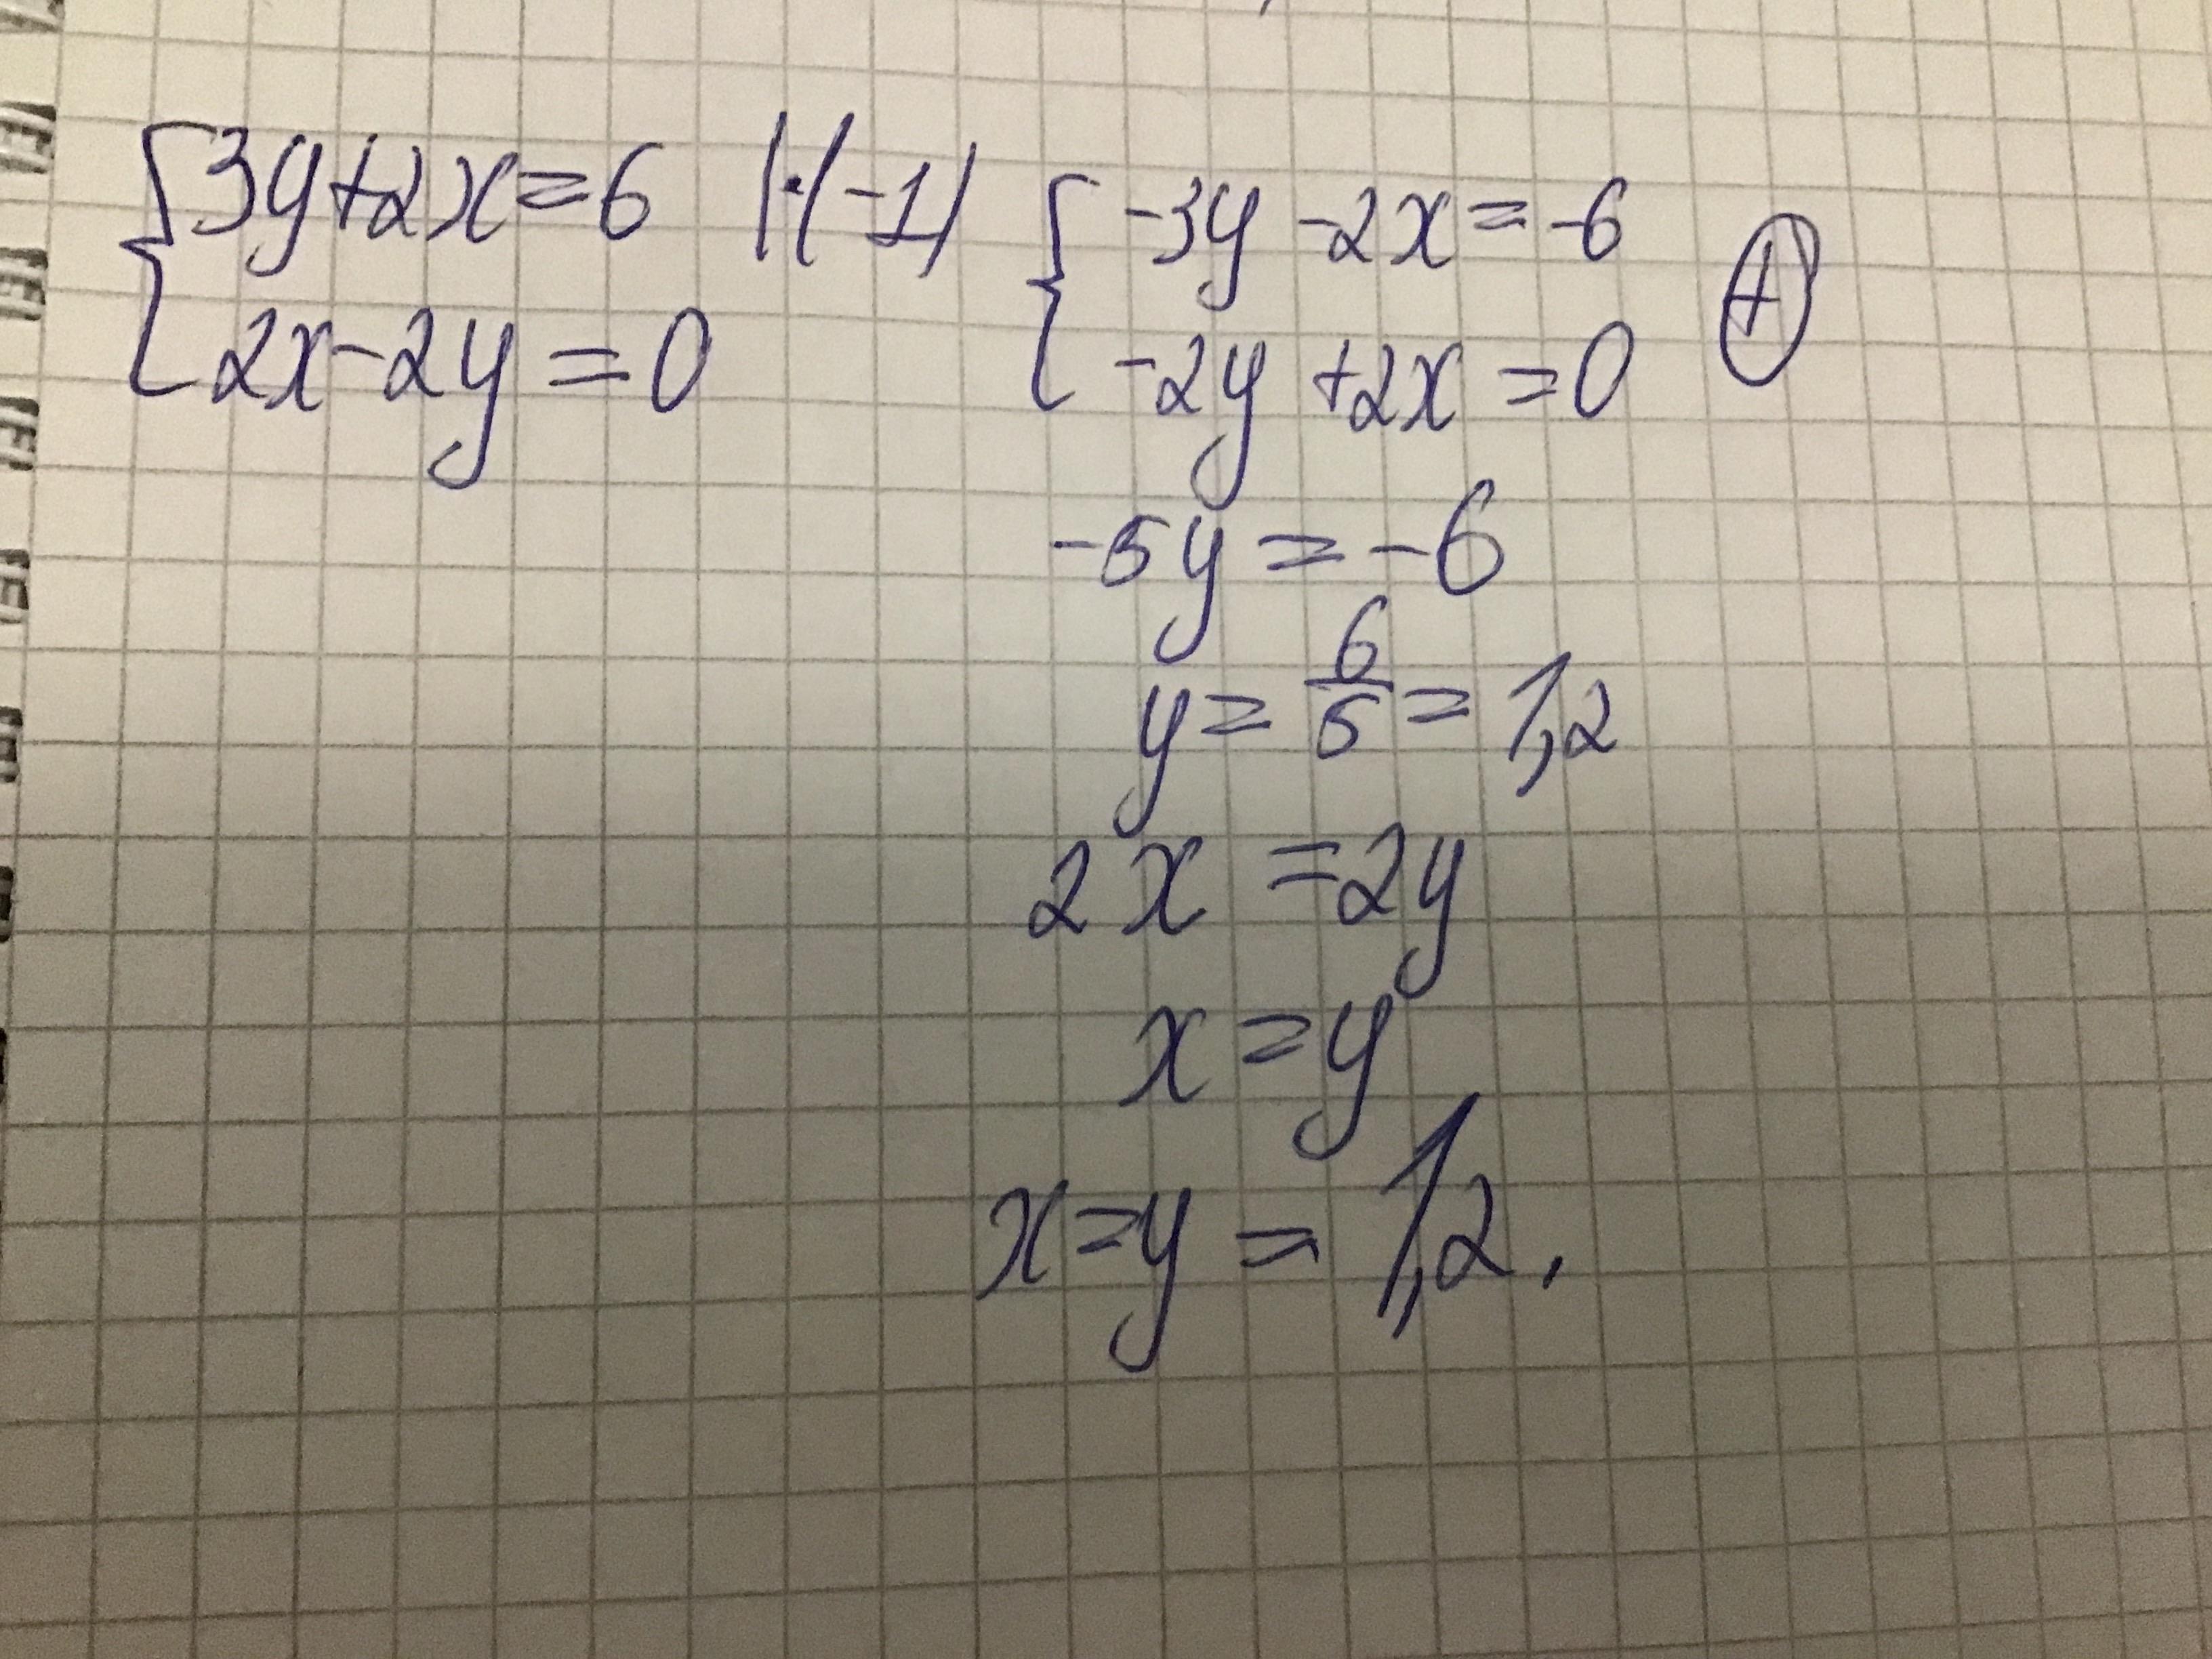 3y+2x=6 |·(-1)
2x-2y=0
-3y-2x=-6
-2y+2x=0 +
-5y=-6
y=6/5=1,2
2x=2y
x=y
x=y=1,2.